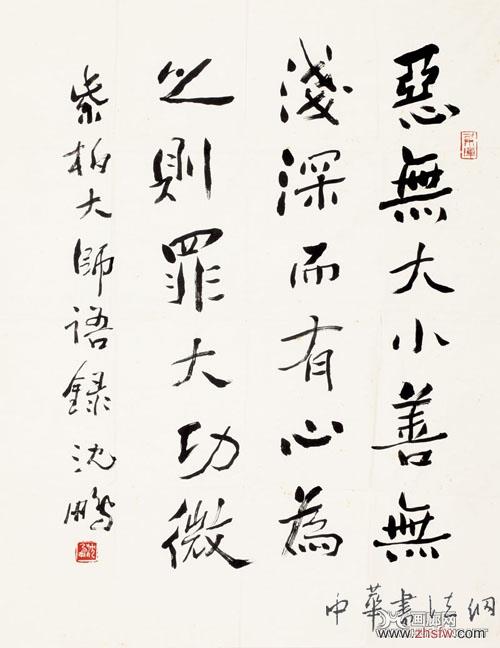 惡無大小善無
淺深而有心為
之則罪大功微
紫柏大師語錄沈鵬
中華書法網
www.zhsfw.com